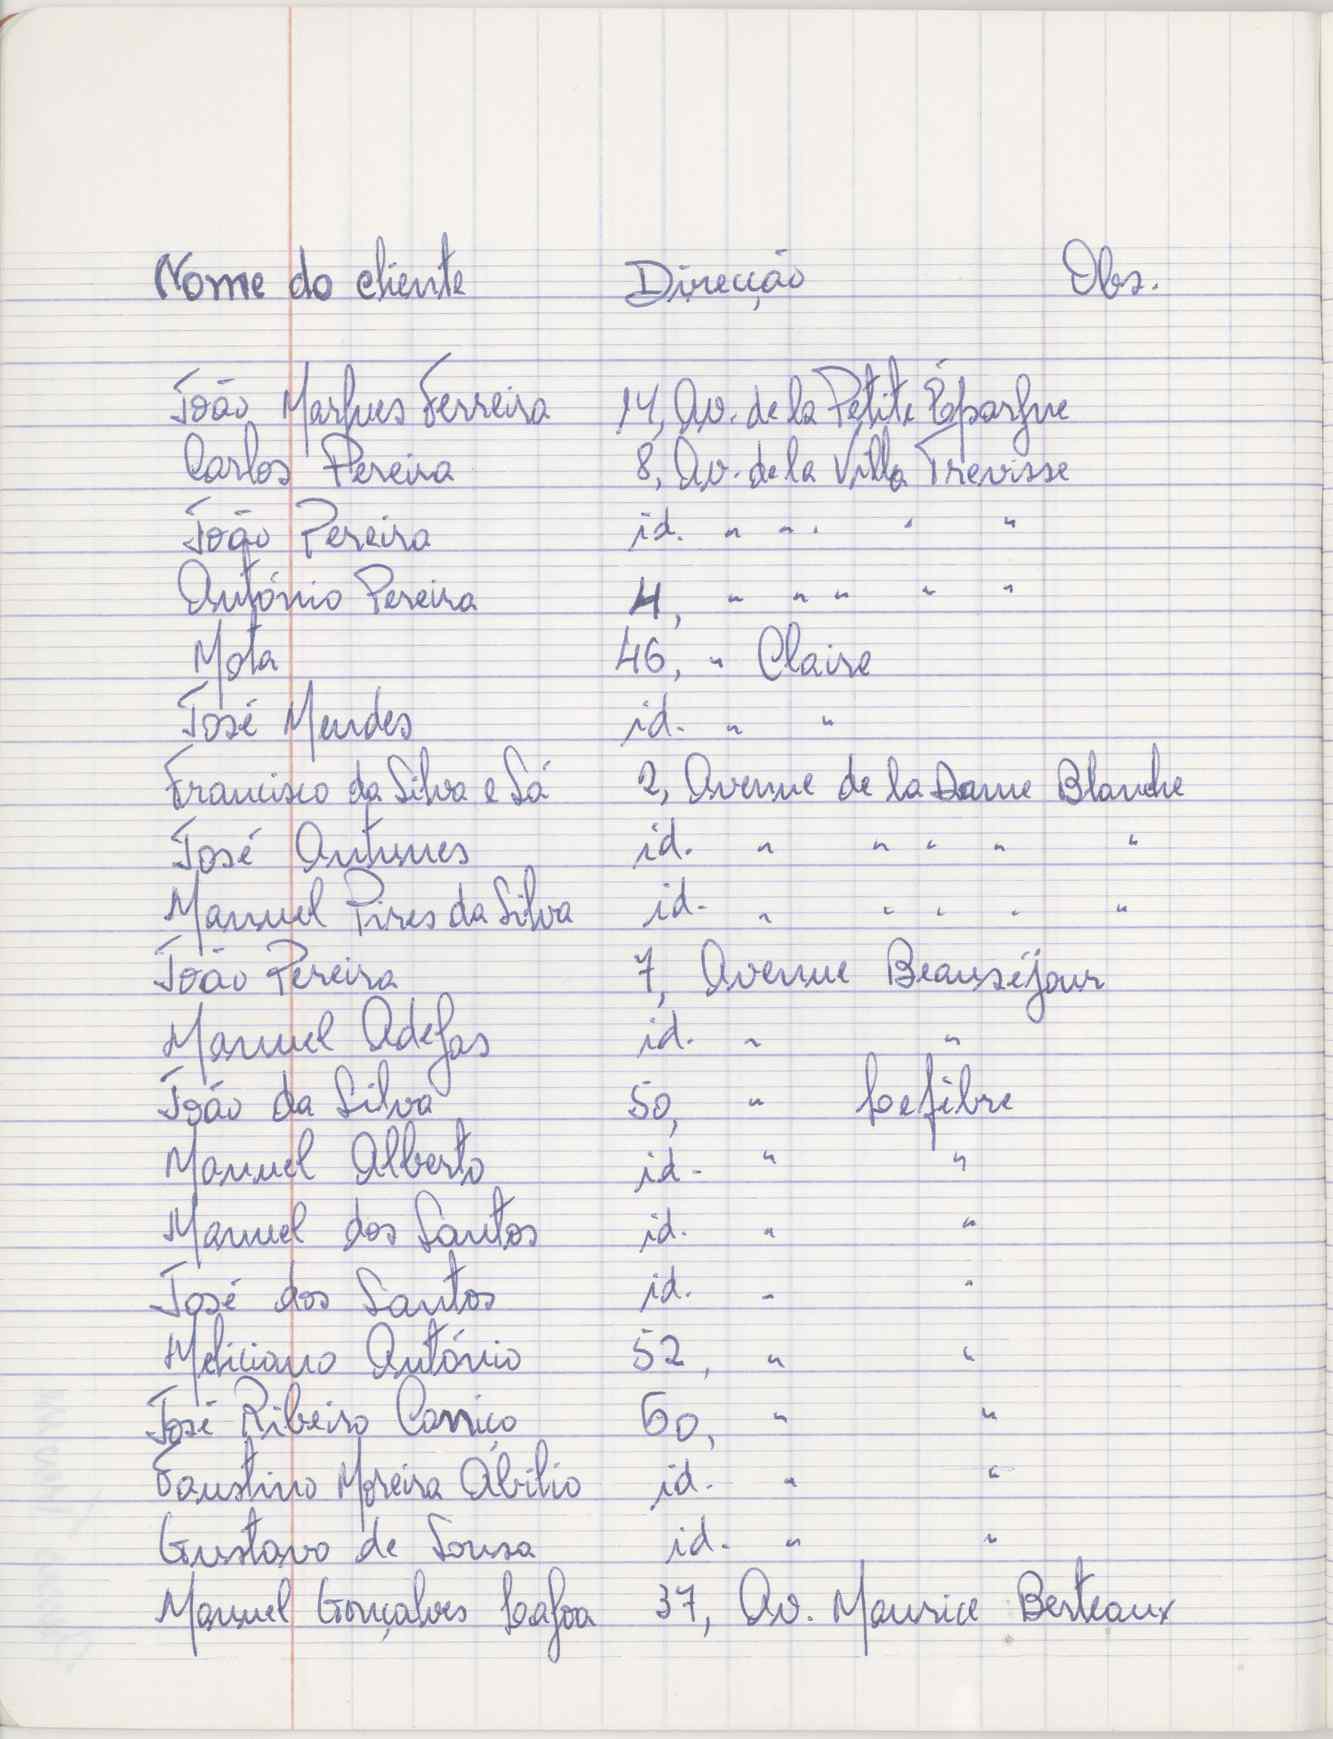 Nome do cliente Direcção Obs.
João Marques Ferreira 14, Av. de la Petite Épargne
Carlos Pereira 8, Av. de la Villa Trevisse
João Pereira id. " " " " "
António Pereira 4, " " " " "
Mota 46, " Claire
José Mendes id. " "
Francisco da Silva e Sá 2, Avenue de la Dame Blanche
José Antunes id. " " " " "
Manuel Pires da Silva id. " " " " "
João Pereira 7, Avenue Beauséjour
Manuel Adegas id. " "
João da Silva 50, " Lefèbre
Manuel Alberto id. " "
Manuel dos Santos id. " "
José dos Santos id. " "
António 52, " "
José Ribeiro Carriço 60, " "
Faustino Moreira Abílio id. " "
Gustavo de Sousa id. " "
Manuel Gonçalves 37, Av. Maurice Berteaux